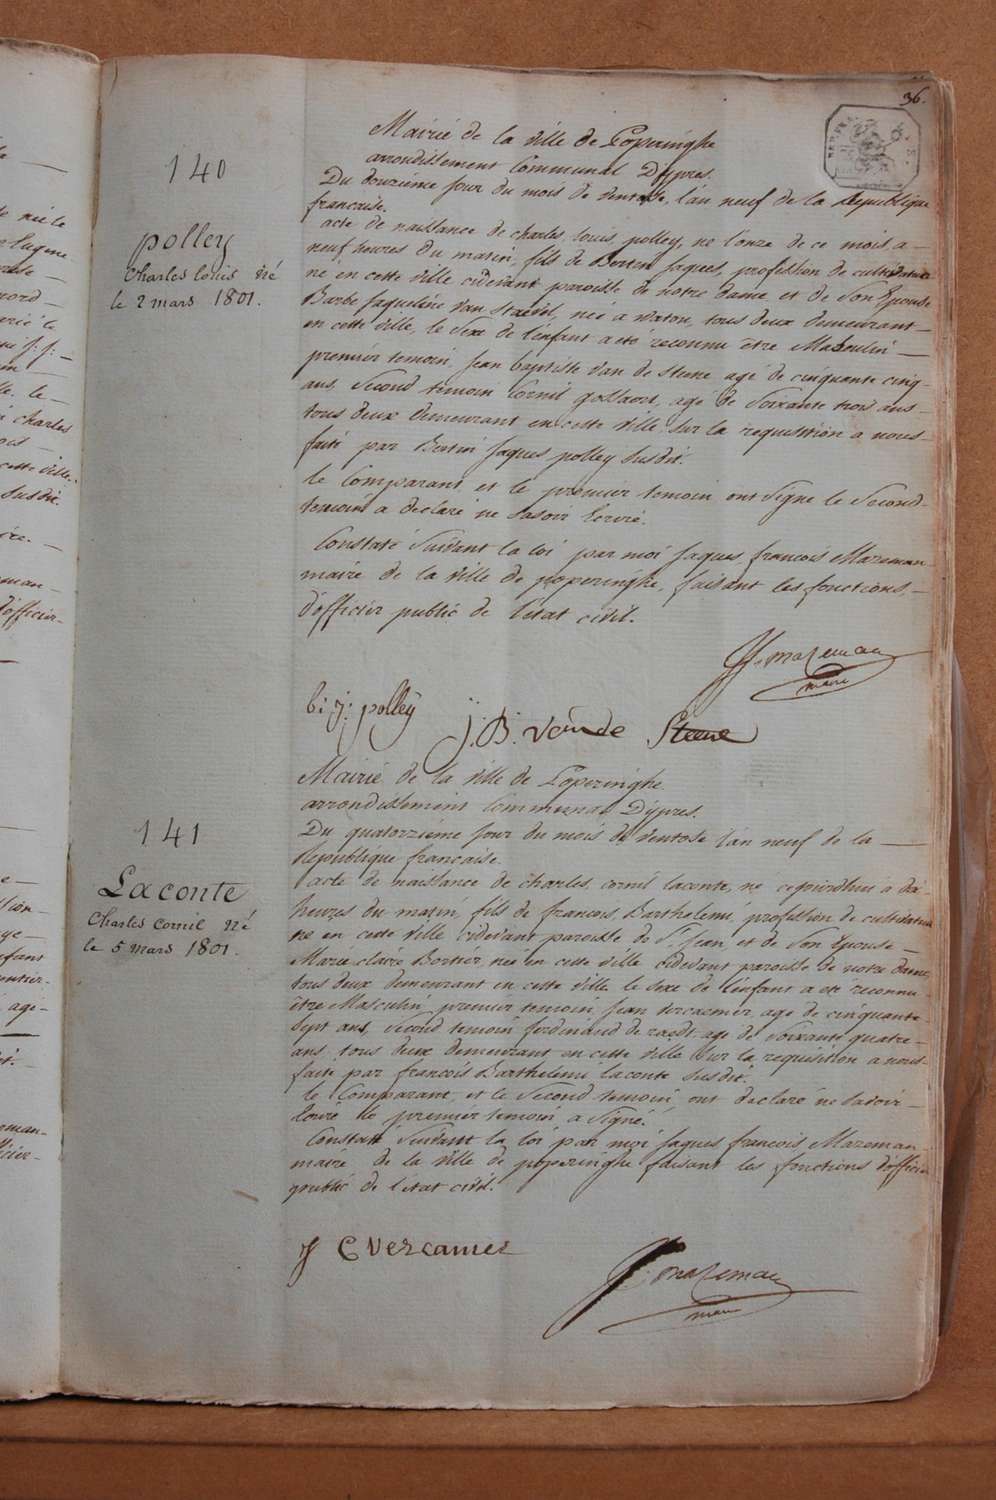 36.
140
polley
Charles louis né
le 2 mars 1801.
Mairié de la ville de Poperinghe
arrondissement Communal D'ypres.
Du douziéme jour du mois de ventose, l'an neuf de la Republique
francaise.
acte de naissance de charles, louis, polley, ne l'onze de ce mois a -
neuf heures du matin, fils de Bertin Jaques, profession de cultivateur
né en cette ville cidevant paroisse de notre dame et de son Epouse
Barbe Jaqueline van Staével, née a watou, tous deux demeurant -
en cette ville, le sexe de l'enfant a été reconnu être Masculin -
premier temoin, Jean baptiste van de Steene agé de cinquante cinq -
ans second temoin Cornil gossaert, agé de soixante trois ans -
tous deux demeurant en cette ville sur la requisition a nous -
faite par Bertin Jaques polley susdit.
le Comparant et le premier temoin ont signe le second -
temoin a declaré ne savoir Ecrire.
Constaté suivant la loi par moi Jaques francois Mazeman
maire de la ville de poperinghe, faisant les fonctions, -
d'officier public de l'etat civil.
JJ. mazeman
maire
b: j: polleÿ
j: B: vande Steene
141
Laconte
Charles Cornil né
le 5 mars 1801.
Mairié de la ville de Poperinghe
arrondissement Communal D'ypres.
Du quatorziéme jour du mois de ventose l'an neuf de la -
Republique francaise.
acte de naissance de charles cornil laconte, ne cejourdhui a dix
heures du matin, fils de francois Barthelemi, profession de cultivateur
ne en cette ville cidevant paroisse de St Jean et de son Epouse -
Marie claire Bortier, née en cette ville cidevant paroisse de notre dame,
tous deux demeurant en cette ville le sexe de l'enfant a été reconnu -
être Masculin, premier temoin Jean vercaemer, agé de cinquante
sept ans, second temoin ferdinand de raedt, agé de soixante quatre -
ans, tous deux demeurant en cette ville sur la requisition a nous -
faite par francois Barthelemi laconte susdit.
le Comparant, et le second temoin, ont declaré ne savoir -
Ecrire le premier temoin a Signé.
Constaté suivant la loi par moi Jaques francois Mazeman -
maire de la ville de poperinghe faisant les fonctions d'officier
public de l'etat civil.
J C vercamer
mazeman
maire